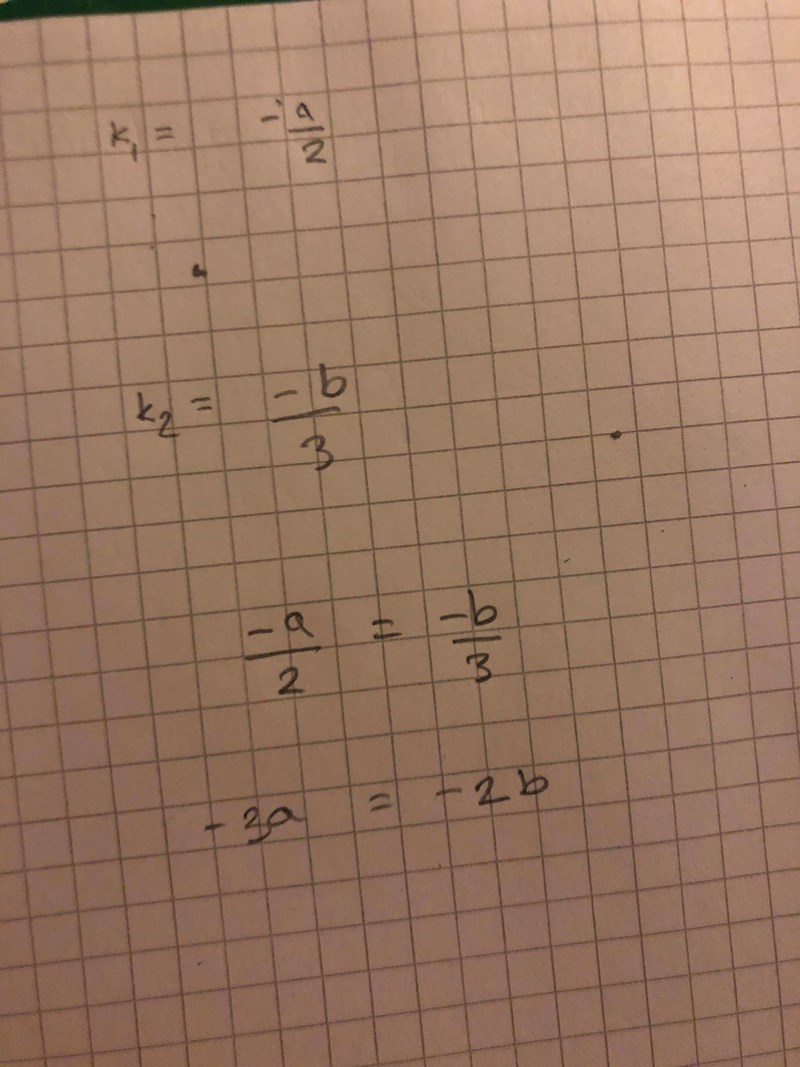 k₁ = -a/2
k₂ = -b/3
-a/2 = -b/3
-3a = -2b